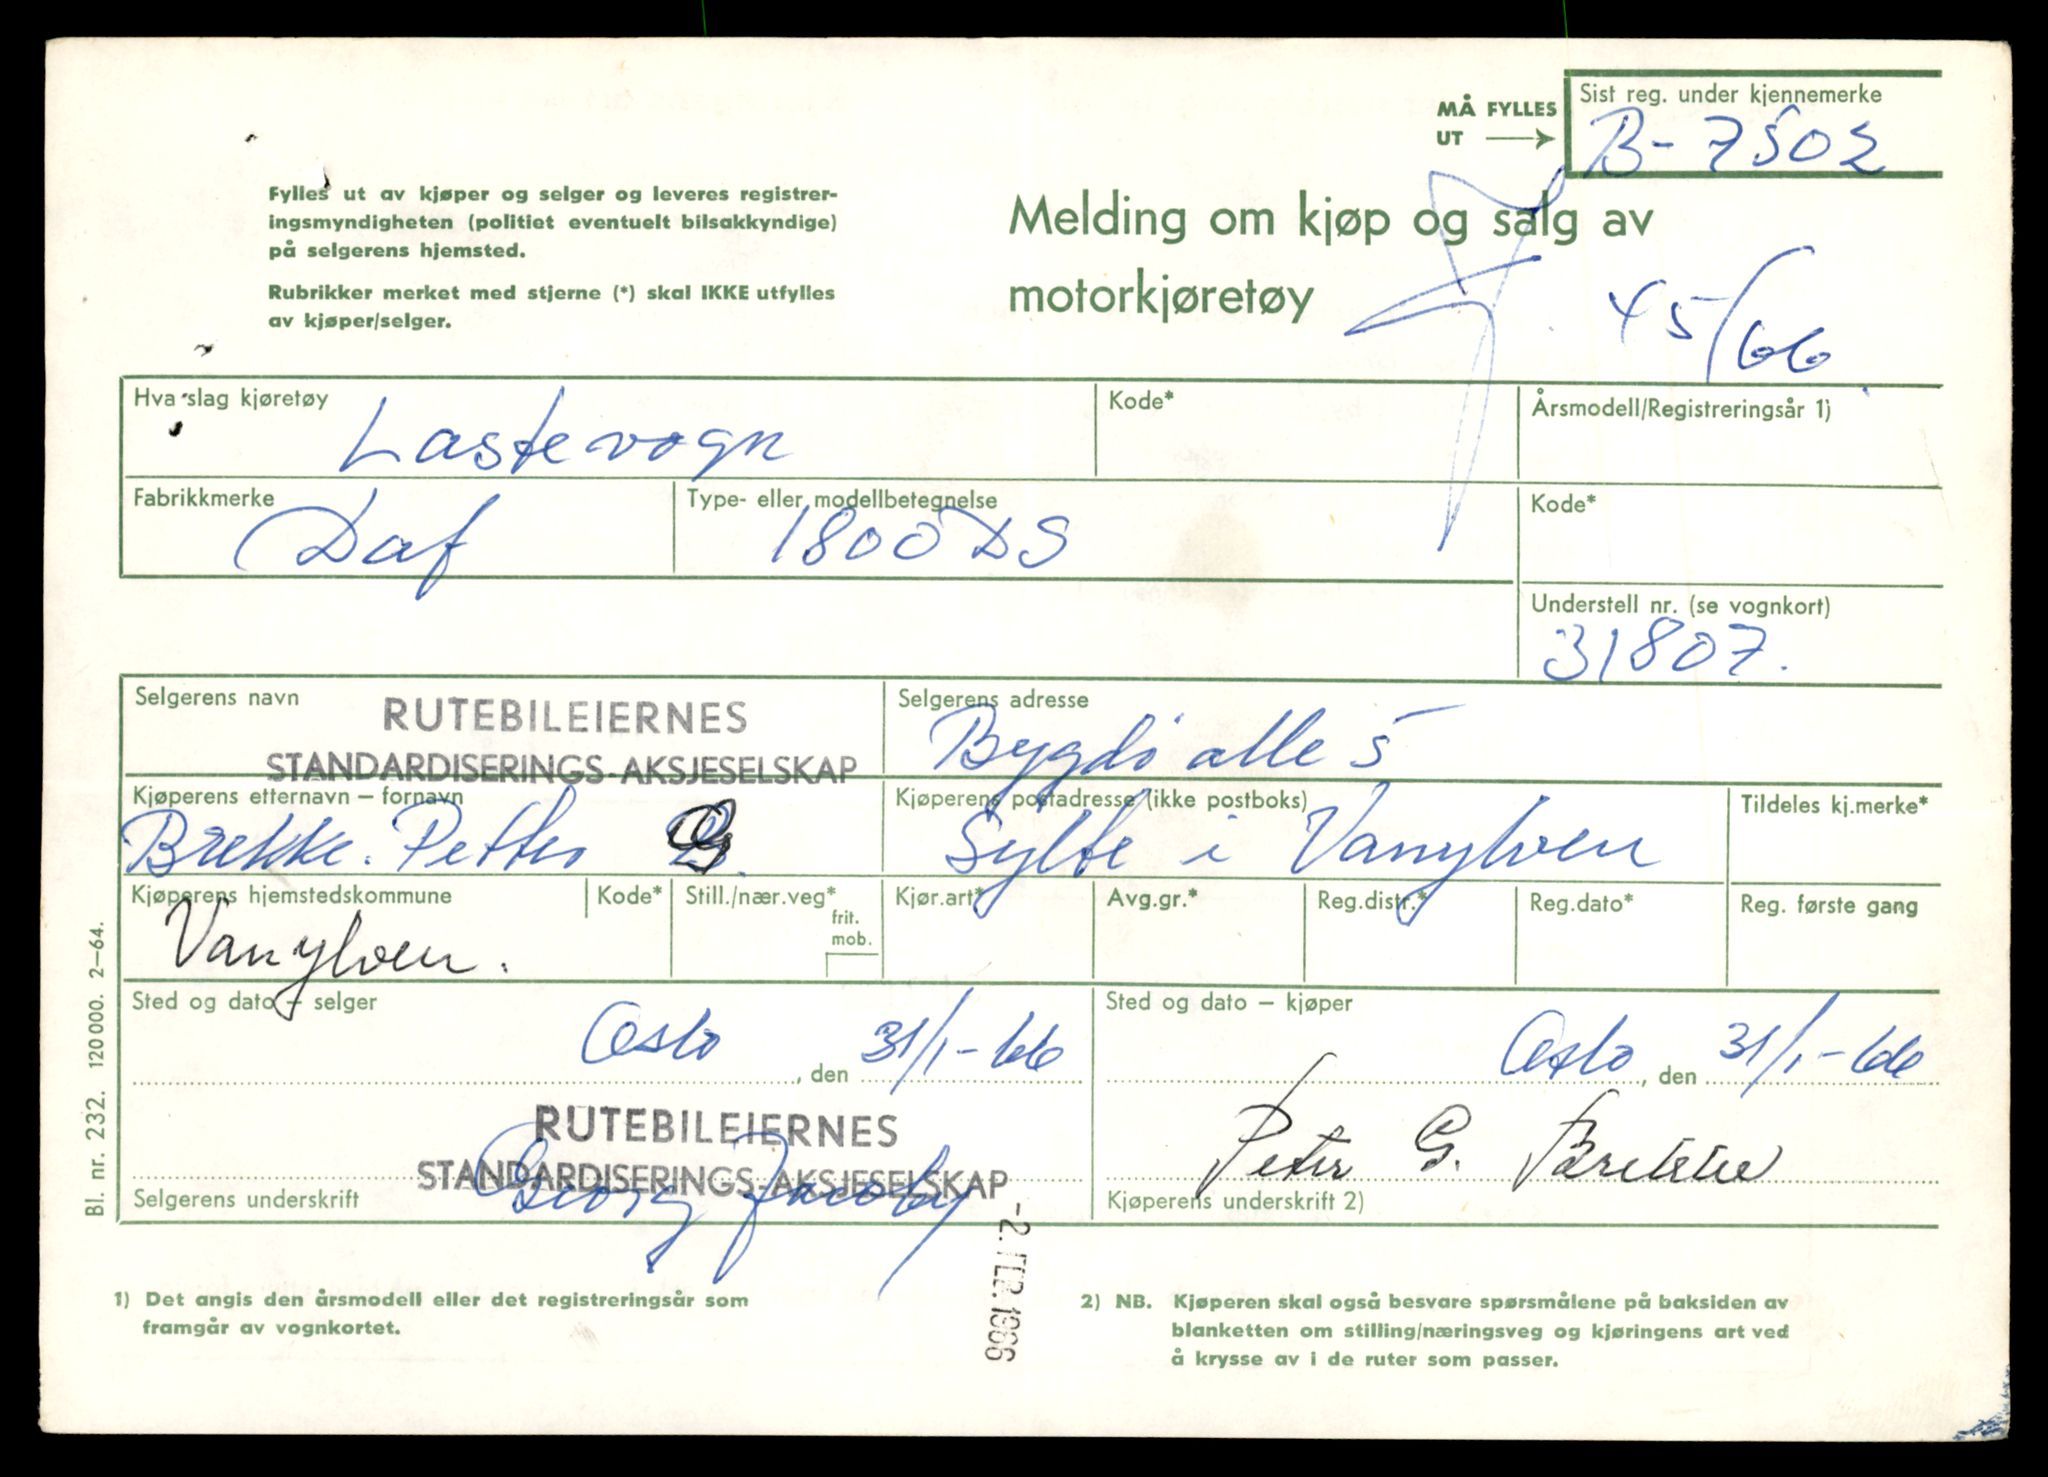 MÅ FYLLES
UT
Sist reg. under kjennemerke
B- 7502
Fylles ut av kjøper og selger og leveres registrer-
ingsmyndigheten (politiet eventuelt bilsakkyndige)
på selgerens hjemsted.
Rubrikker merket med stjerne (*) skal IKKE utfylles
av kjøper/selger.
Melding om kjøp og salg av
motorkjøretøy
45/66
Hva slag kjøretøy
Lastevogn
Kode*
Årsmodell/Registreringsår 1)
Fabrikkmerke
Daf
Type- eller modellbetegnelse
1800 DS
Kode*
Understell nr. (se vognkort)
31807.
Selgerens navn
RUTEBILEIERNES
STANDARDISERINGS-AKSJESELSKAP
Selgerens adresse
Bygdø alle 5
Kjøperens etternavn – fornavn
Brekke. Petter G.
Kjøperens postadresse (ikke postboks)
Sylte i Vanylven
Tildeles kj.merke*
Kjøperens hjemstedskommune
Vanylven.
Kode*
Still./nær.veg*
frit.
mob.
Kjør.art*
Avg.gr.*
Reg.distr.*
Reg.dato*
Reg. første gang
Sted og dato – selger
Oslo, den 31/1-66
Sted og dato – kjøper
Oslo, den 31/1-66
RUTEBILEIERNES
STANDARDISERINGS-AKSJESELSKAP
Georg Jacoby
Selgerens underskrift
Peter G. Brekke
Kjøperens underskrift 2)
-2. FEB. 1966
1) Det angis den årsmodell eller det registreringsår som
framgår av vognkortet.
2) NB. Kjøperen skal også besvare spørsmålene på baksiden av
blanketten om stilling/næringsveg og kjøringens art ved
å krysse av i de ruter som passer.
Bl. nr. 232. 120 000. 2–64.